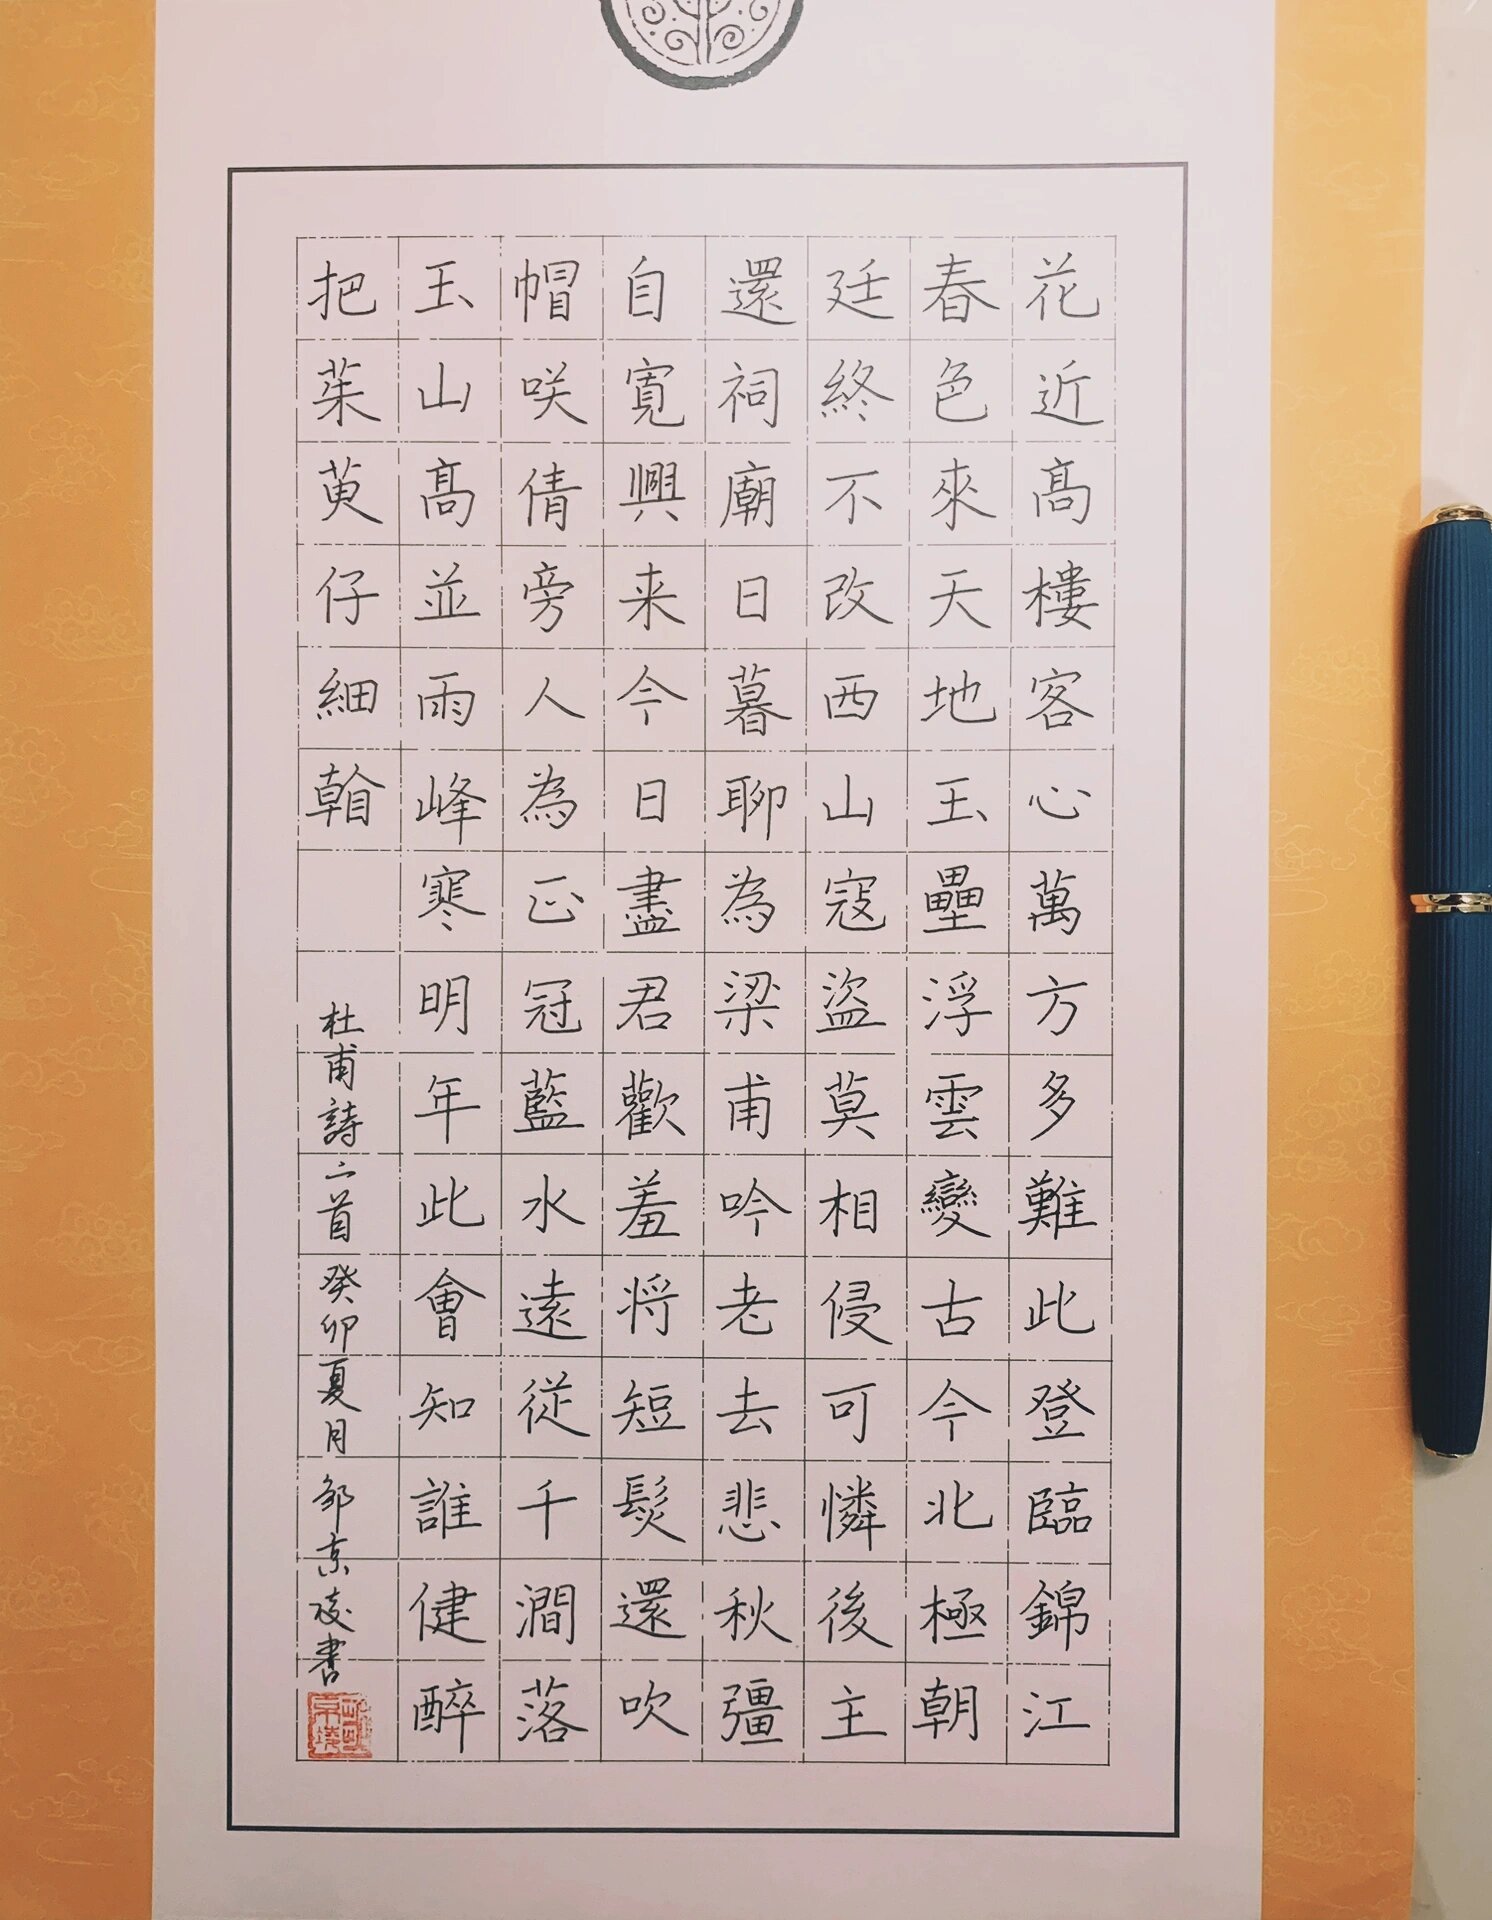 花近髙樓客心萬方多難此登臨錦江
春色來天地玉壘浮雲變古今北極朝
廷終不改西山寇盜莫相侵可憐後主
還祠廟日暮聊為梁甫吟老去悲秋彊
自寬興来今日盡君歡羞将短髮還吹
帽咲倩旁人為正冠藍水遠從千澗落
玉山髙並雨峰寒明年此會知誰健醉
把茱萸仔細看
杜甫詩二首 癸卯夏月 邹京 書